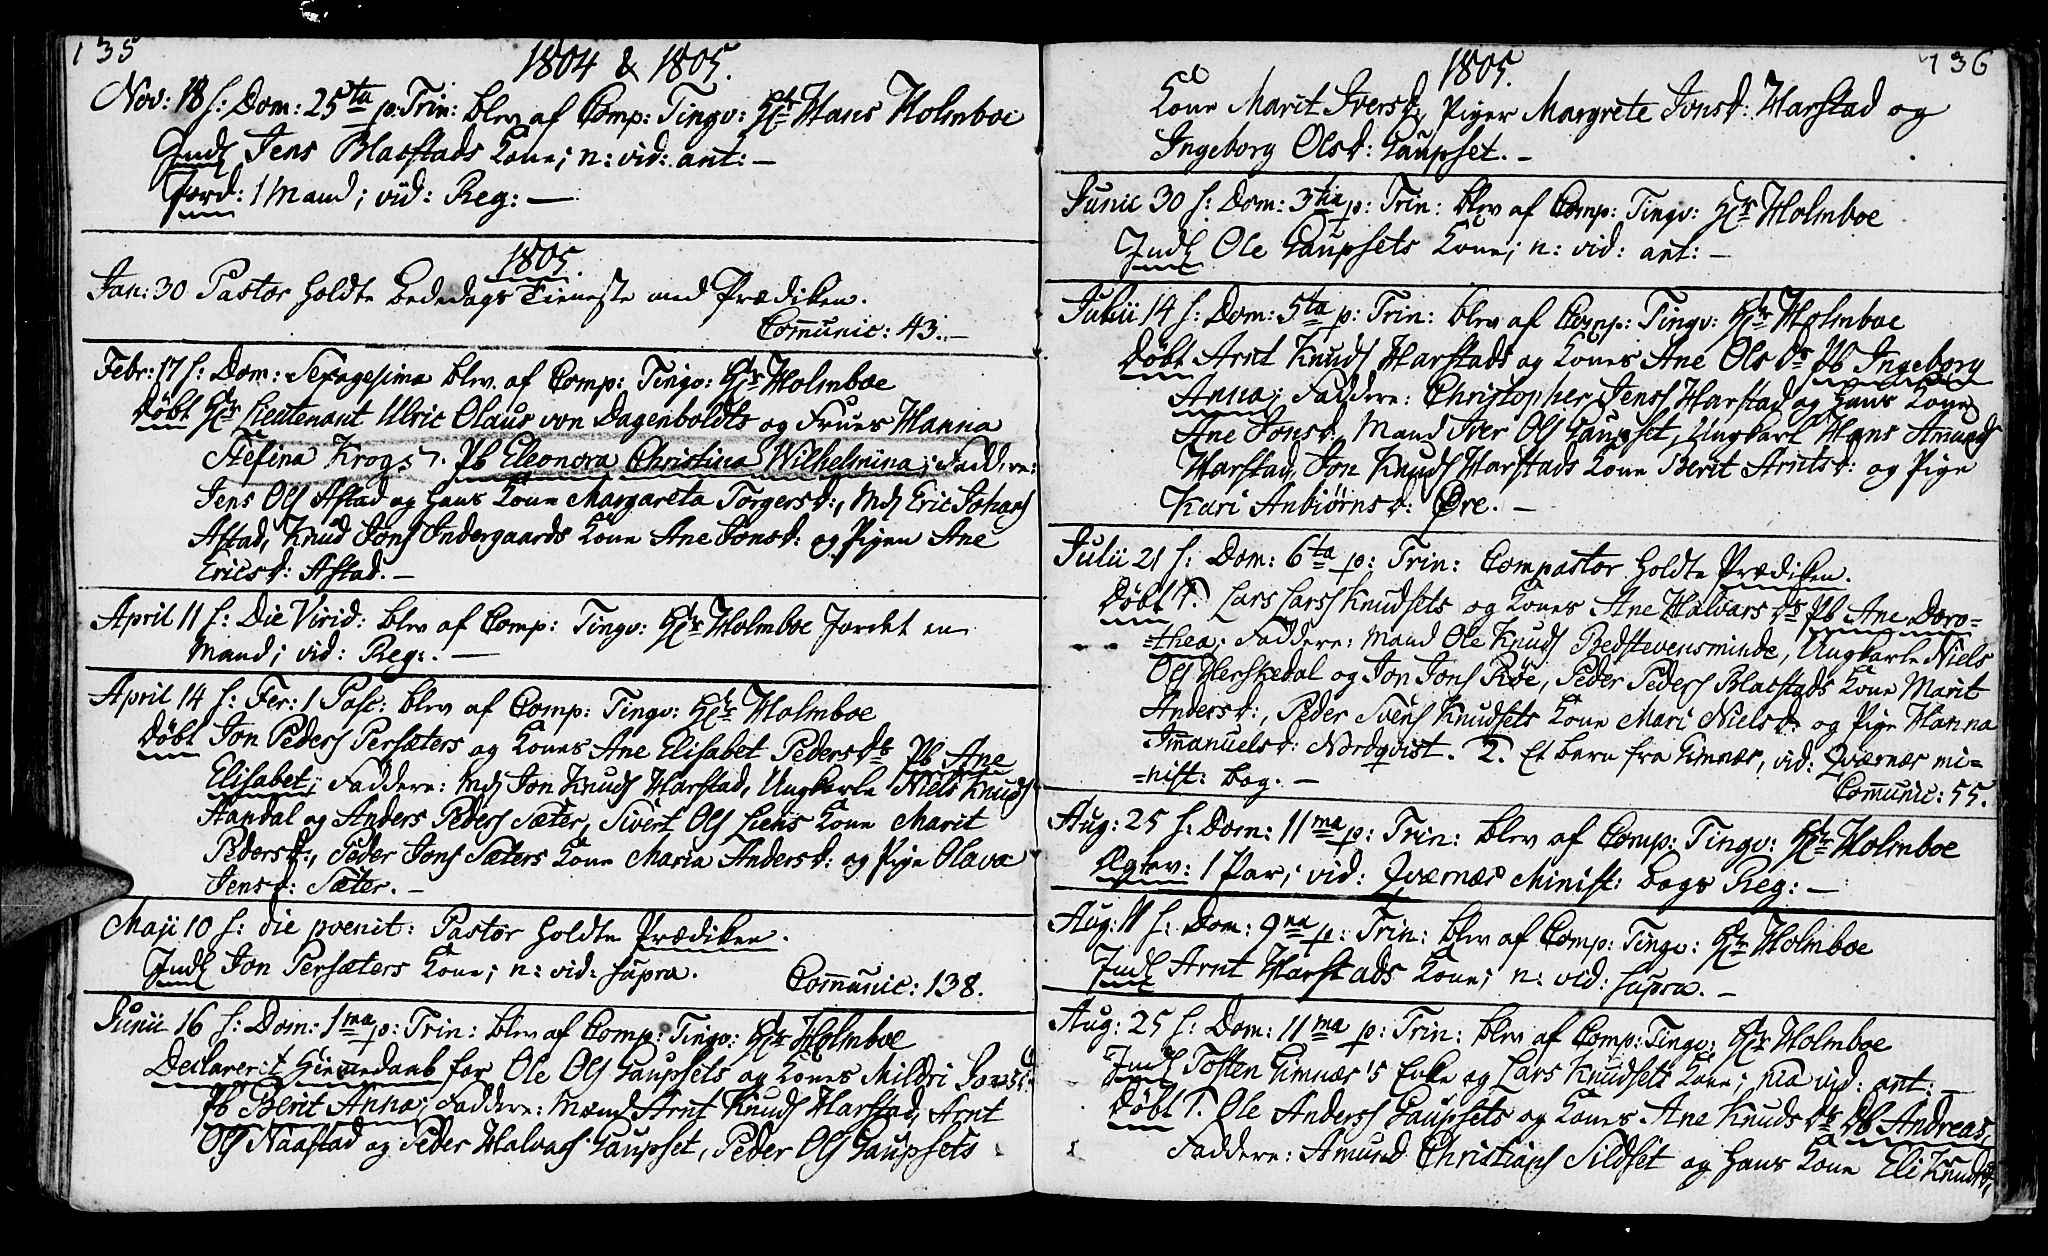 135
1804 & 1805.
Nov: 18 s: Dom: 25ta p: Trin: blev af Comp: Tingv: Hr Hans Holmboe
Indl Jens Blacstads Kone; n: vid: ant: —
Jord: 1 Mand; vid: Reg: —
1805.
Jan: 30 Pastor holdte bededags Tieneste med Prædiken.
Communic: 43. —
Febr: 17 s: Dom: Sexagesima blev af Comp: Tingv: Hr Holmboe
Døbt Hr Lieutenant Ulric Olaus von Dagenboldts og Frues Hanna
Stefina Krogs . Pb Eleonora Christina Wilhelmina; Faddere:
Jens Ols Astad og hans Kone Margareta Torgersd:, Md Eric Johans
Astad, Knud Jons Indergaards Kone Ane Jonsd: og Pigen Ane
Ericsd: Astad. —
April 11 s: Die Virid: blev af Comp: Tingv: Hr Holmboe Jordet en
Mand; vid: Reg: —
April 14 s: Fer: 1 Pasc: blev af Comp: Tingv: Hr Holmboe
Døbt Jon Peders Persæters og Kones Ane Elisabet Pedersds Pb Ane
Elisabet; Faddere: Md Jon Knuds Harstad, Ungkarle Niels Knuds
Aandal og Anders Peders Sæter, Sivert Ols Liens Kone Marit
Pedersd:, Peder Jons Sæters Kone Maria Andersd: og Pige Olava
Jensd: Sæter. —
Maji 10 s: die poenit: Pastor holdte Prædiken.
Indl Jon Persæters Kone; n: vid: supra.
Communic: 138.
Junii 16 s: Dom: 1ma p: Trin: blev af Comp: Tingv: Hr Holmboe
Declareret Hiemmedaab for Ole Ols Gaupsets og Kones Mildri
Pb Berit Anna; Faddere: Mænd Arnt Knuds Harstad, Arnt
Ols Naastad og Peder Halvars Gaupset, Peder Ols Gaupsets
136
1805.
Kone Marit Iversd:, Piger Margrete Jonsd: Harstad og
Ingeborg Olsd: Gaupset. —
Junii 30 s: Dom: 3tia p: Trin: blev af Comp: Tingv: Hr Holmboe
Indl Ole Gaupsets Kone; n: vid: ant: —
Julii 14 s: Dom: 5ta p: Trin: blev af Comp: Tingv: Hr Holmboe
Døbt Arnt Knuds Harstads og Kones Ane Olsds Pb Ingeborg
Anna; Faddere: Christopher Jens Harstad og hans Kone
Ane Jonsd:, Mand Iver Ols Gaupset, Ungkarl Hans Amunds
Harstad, Jon Knuds Harstads Kone Berit Arntsd: og Pige
Kari Anbiørnsd: Øre. —
Julii 21 s: Dom: 6ta p: Trin: Compastor holdte Prædiken.
Døbt 1. Lars Lars Knudsets og Kones Ane Halvarsds Pb Ane Doro=
=thea; Faddere: Mand Ole Knuds Bedstevensminde, Ungkarle Niels
Ols Herskedal og Jon Jons Røe, Peder Peders Blacstads Kone Marit
Andersd:, Peder Svens Knudsets Kone Mari Nielsd: og Pige Hanna
Immanuelsd: Nordqvist. 2. Et barn fra Gimnæs, vid: Qværnæs mi=
=nist: bog. —
Communic: 55.
Aug: 25 s: Dom: 11ma p: Trin: blev af Comp: Tingv: Hr Holmboe
Ægtev: 1 Par; vid: Qværnæs Minist: bogs Reg: —
Aug: 11 s: Dom: 9na p: Trin: blev af Comp: Tingv: Hr Holmboe
Indl Arnt Harstads Kone; n: vid: supra. —
Aug: 25 s: Dom: 11ma p: Trin: blev af Comp: Tingv: Hr Holmboe
Indl Tosten Gimnæs's Enke og Lars Knudsets Kone; nia vid: ant: —
Døbt 1. Ole Anders Gaupsets og Kones Ane Knudsds Db Andreas;
Faddere: Amund Christians Sildset og hans Kone Eli Knudsd:,